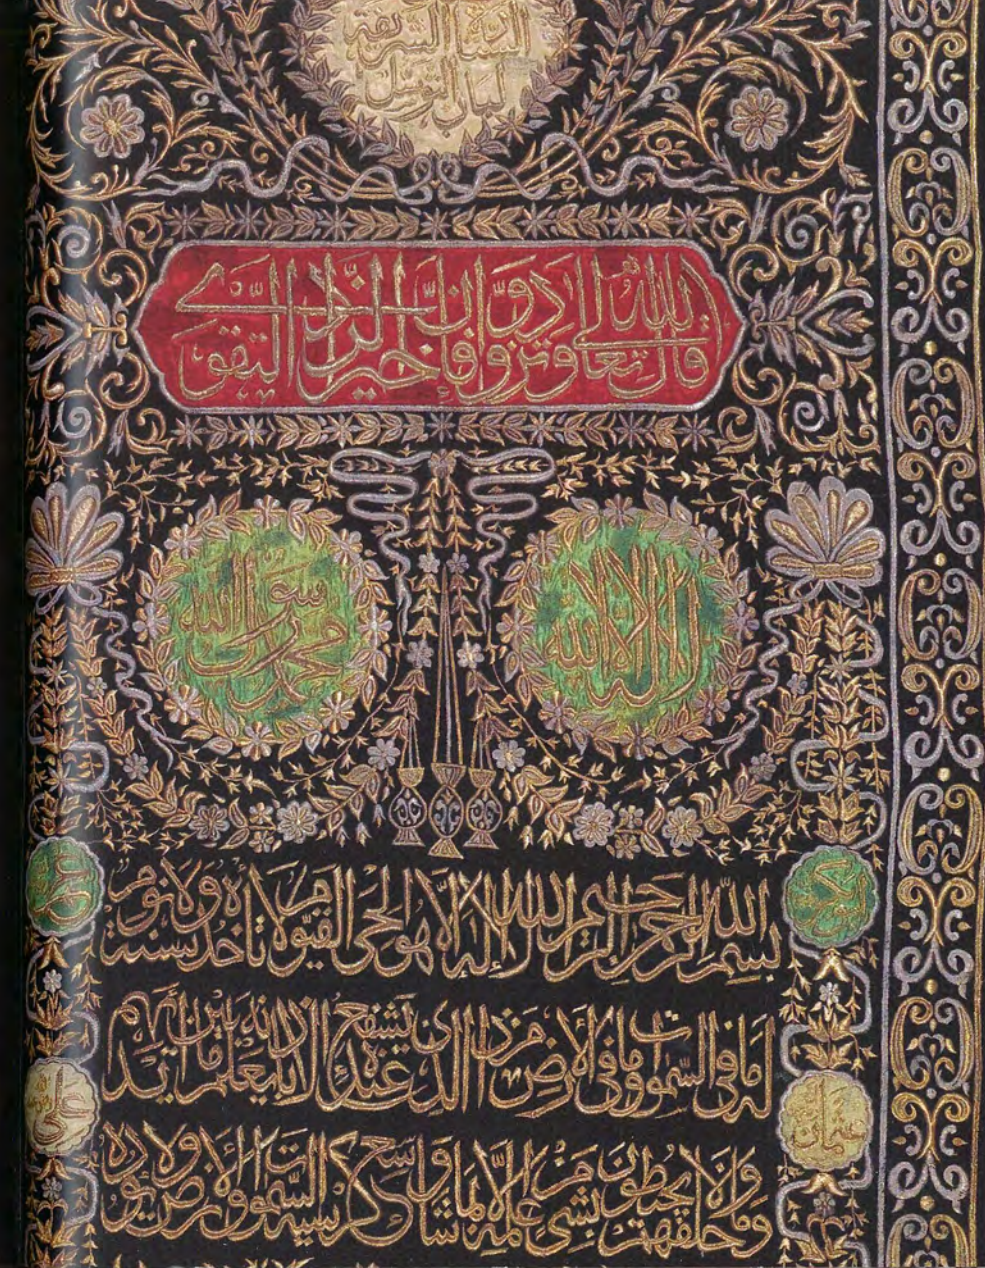 الستارة الشريفة
لباب التوسل
قال الله تعالى وتزودوا فإن خير الزاد التقوى
لا اله الا الله
محمد رسول الله
ابو بكر
عمر
بسم الله الرحمن الرحيم الله لا إله إلا هو الحي القيوم لا تأخذه سنة ولا نوم
له ما في السموات وما في الارض من ذا الذي يشفع عنده الا باذنه يعلم ما بين ايديهم
عثمان
علي
وما خلفهم ولا يحيطون بشيء من علمه إلا بما شاء وسع كرسيه السموات والارض ولا يؤده